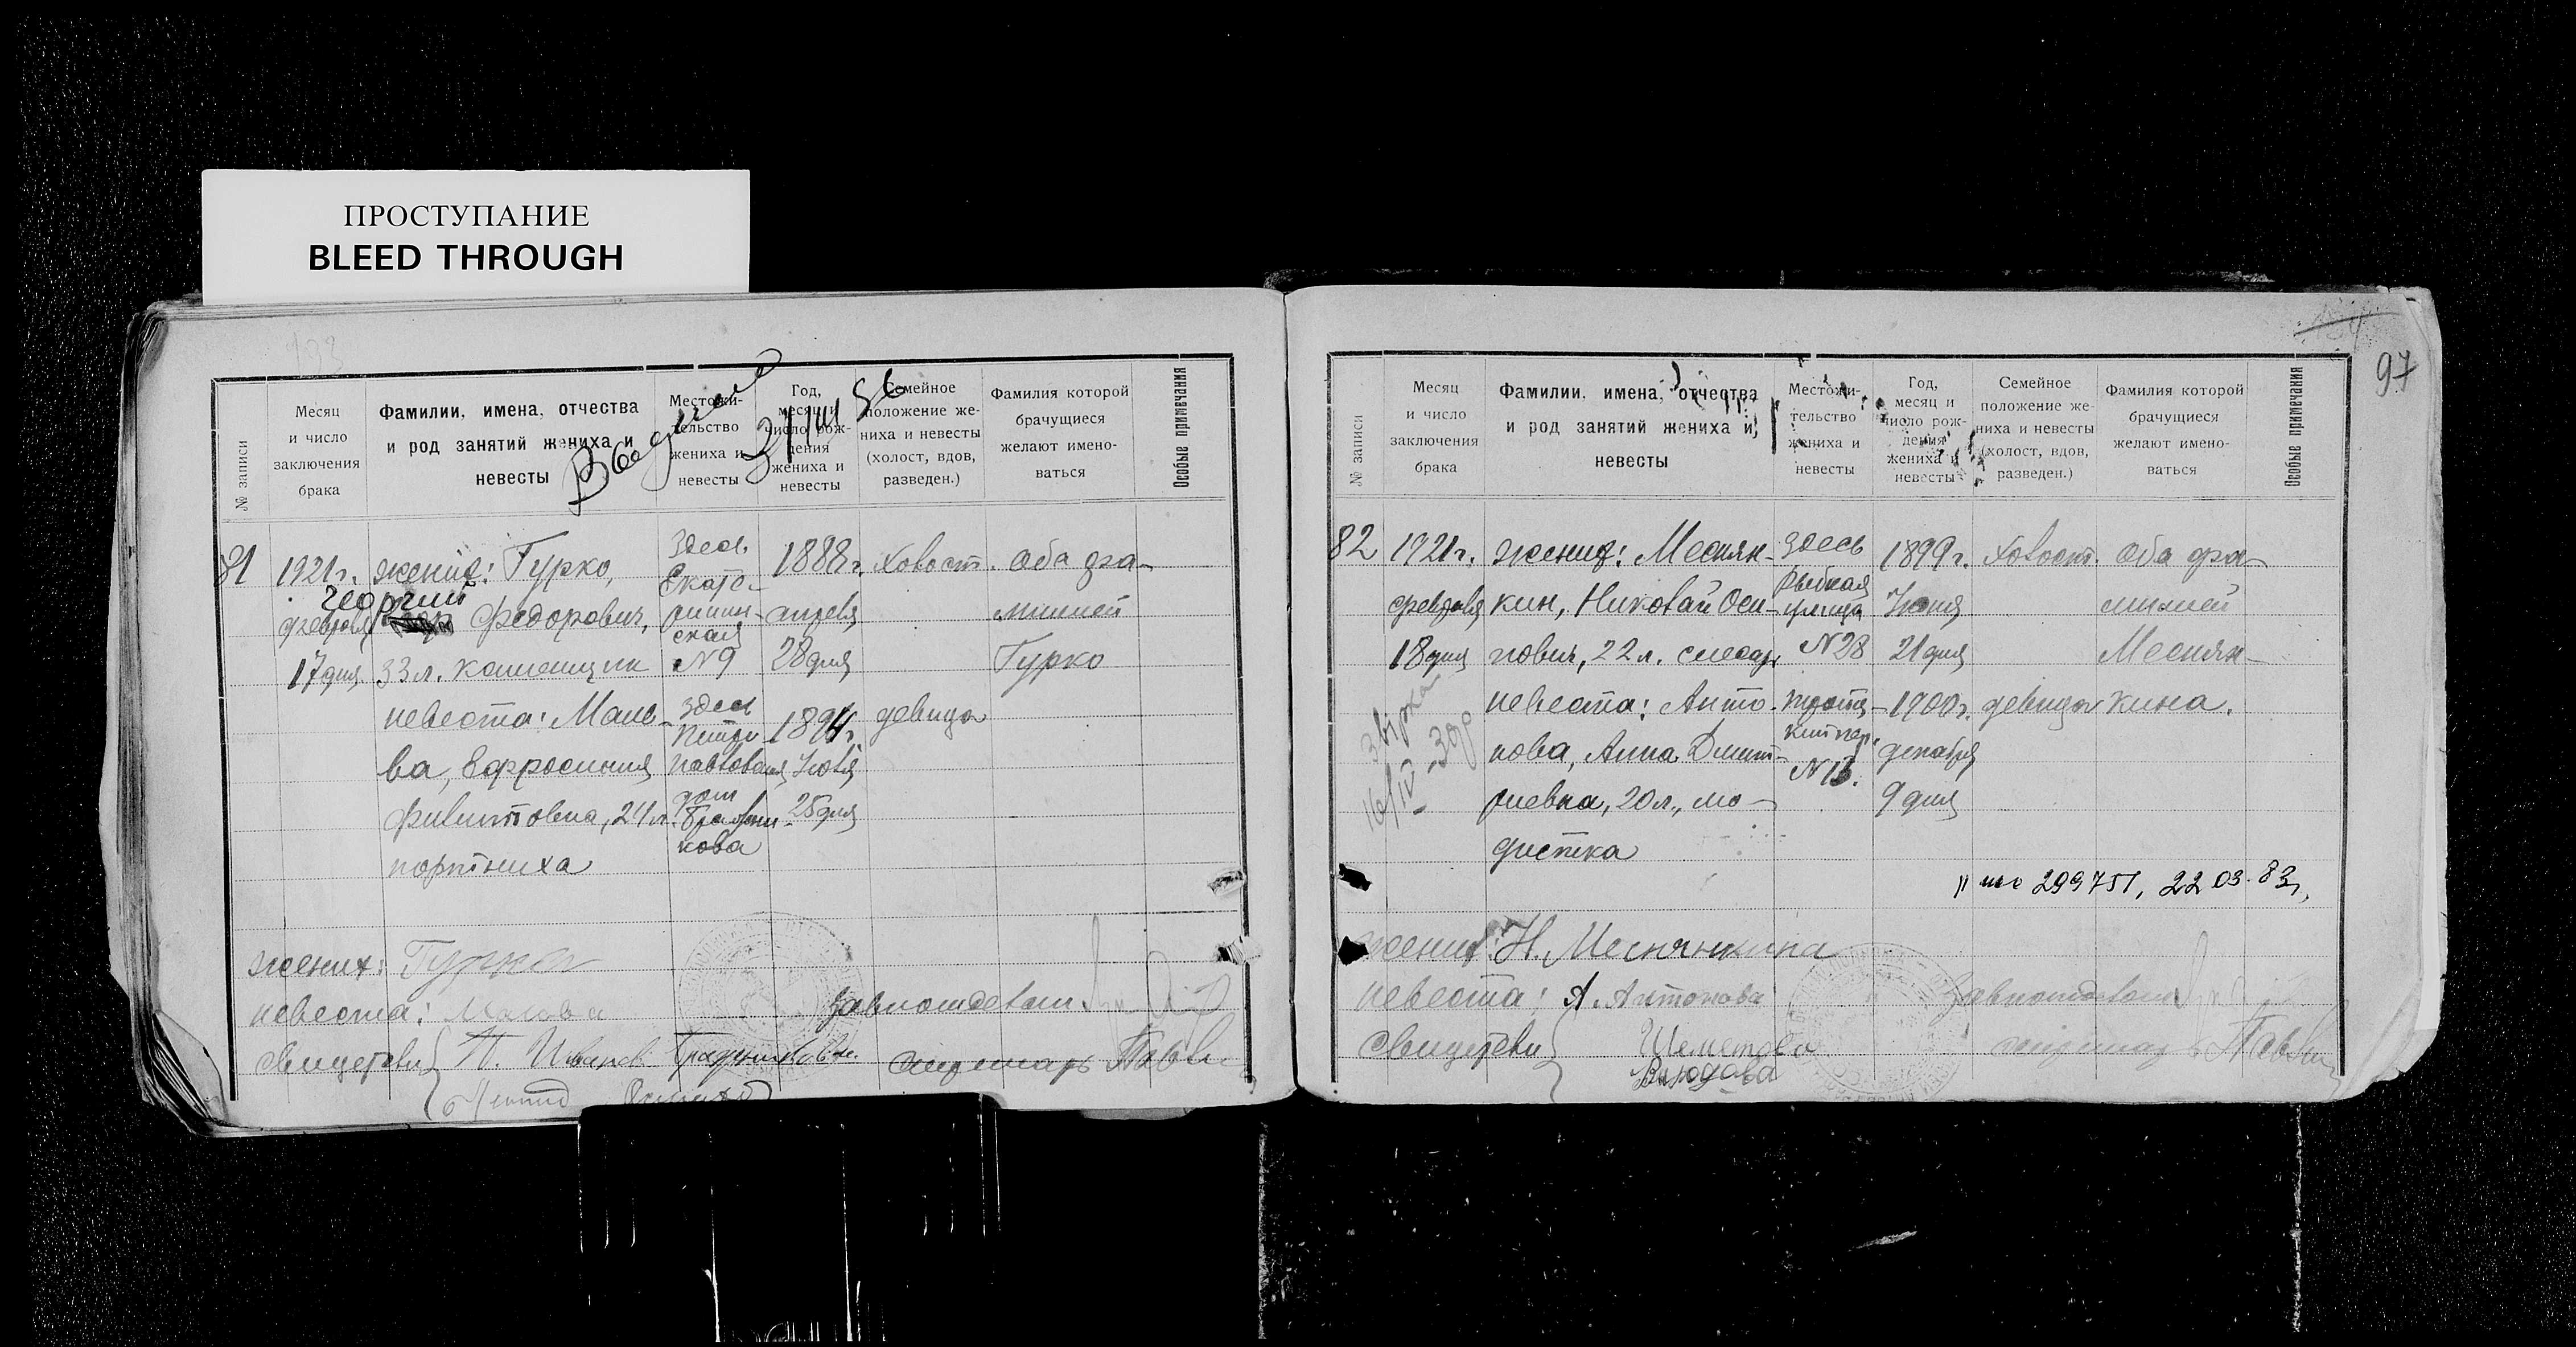 ПРОСТУПАНИЕ
BLEED THROUGH
№ записи
Месяц
и число
заключения
брака
Фамилии, имена, отчества
и род занятий жениха и
невесты
Местожи-
тельство
жениха и
невесты
Год,
месяц и
число рож-
дения
жениха и
невесты
Семейное
положение же-
ниха и невесты
(холост, вдов,
разведен.)
Фамилия которой
брачущиеся
желают имено-
ваться
Особые примечания
81
1921г.
февраля
17 дня
жених: Гурко,
Георгий
Федорович,
33 л. каменщик
невеста: Мале-
ва, Ефросиния
Филиповна, 24 л.
портниха
Здесь
Екате-
ринин-
ская
№ 9
здесь
Петро-
павловская
дом
1888г.
апреля
28 дня
1894г.
Июля
25 дня
Холост.
девица
Оба фа-
милией
Гурко
жених: Гурко
невеста: Малева
свидетели
Завподотделом
секретарь
97
№ записи
Месяц
и число
заключения
брака
Фамилии, имена, отчества
и род занятий жениха и
невесты
Местожи-
тельство
жениха и
невесты
Год,
месяц и
число рож-
дения
жениха и
невесты
Семейное
положение же-
ниха и невесты
(холост, вдов,
разведен.)
Фамилия которой
брачущиеся
желают имено-
ваться
Особые примечания
82
1921г.
февраля
18 дня
жених: Меснян-
кин, Николай Оси-
пович, 22 л. слесарь
невеста: Анто-
нова, Анна Дмит-
риевна, 20 л., мо-
дистка
здесь
Рыбная
улица
№ 28
№ 13.
1899г.
Июня
21 дня
1900г.
декабря
9 дня
Холост.
девица
Оба фа-
милией
Меснян-
кина.
299751, 22 03. 83
жених: Н. Меснянкина
невеста: А. Антонова
свидетели
Шеметова
Завподотделом
секретарь